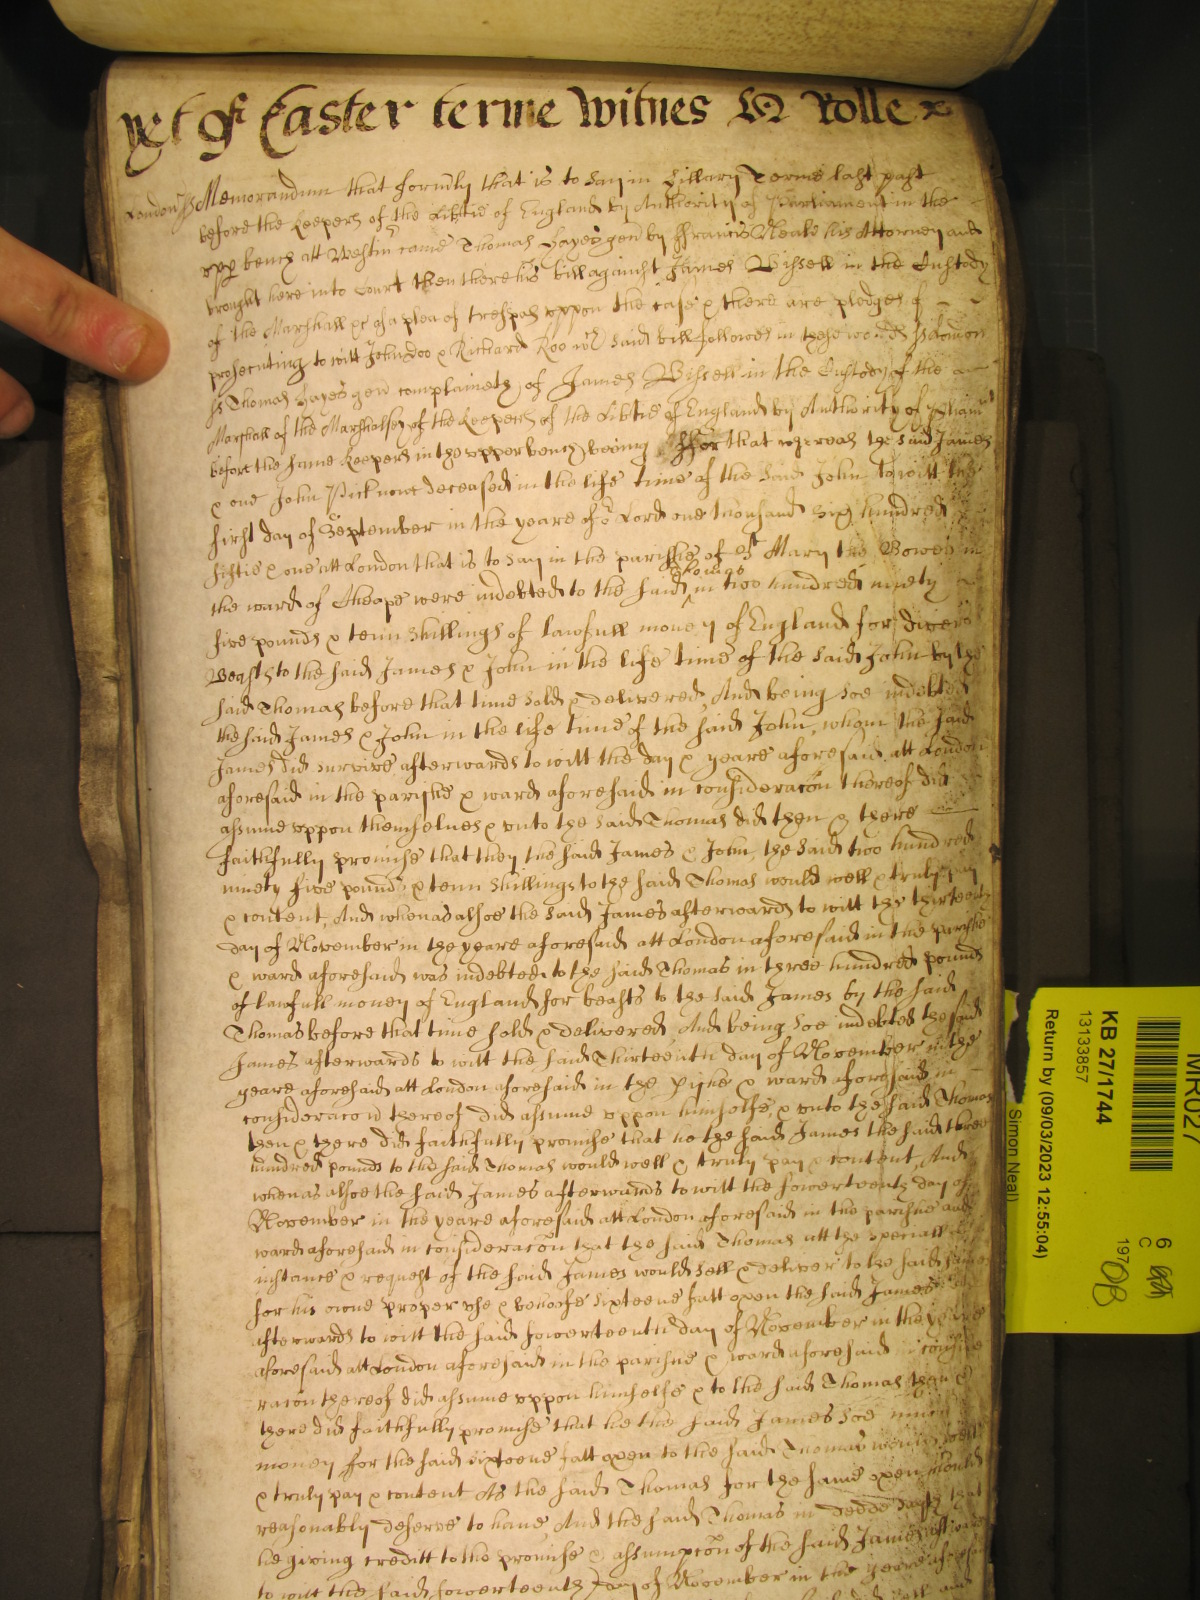 yet of Easter terme Witnes H Rolle
London ss Memorandum that formrly that is to say in Hillary Terme last past
before the Keepers of the Libtie of England by Authority of Parliament in the
upp bench att Westm came Thomas Hayes gen by Francis Neale his Attorney and
brought here into Court then there his bill against James Bissell in the Custody
of the Marshall &c of a plea of trespas uppon the case & there are pledges of
prosecuting to witt John Doo & Richard Roo wch said bill followes in these words London
ss Thomas Hayes gen complaineth of James Bissell in the Custody of the
Marshall of the Marshalsey of the Keepers of the Libtie of England by Authority of
before the same Keepers in the upper bench being ffor that whereas the said James
& one John Pick now deceased in the life time of the said John to witt the
first day of September in the yeare of or Lord one thousand six hundred
fiftie & one att London that is to say in the parishe of St Mary the Bowe in
Thomas
the ward of Cheape were indebted to the said in two hundred ninety
five pounds & tenn shillings of lawfull money of England for divers
Beasts to the said James & John in the life time of the said John by the
said Thomas before that time sold & delivered, And being soe indebted
the said James & John in the life time of the said John, whom the said
James did survive afterwards to witt the day & yeare aforesaid att London
aforesaid in the parishe & ward aforesaid in consideracon thereof did
assume uppon themselves & unto the said Thomas did then & there
faithfully promise that they the said James & John, the said two hundred
ninety five pounds & tenn shillings to the said Thomas would well & truly pay
& content, And whenas alsoe the said James afterwards to witt the thirteenth
day of November in the yeare aforesaid att London aforesaid in the parishe
& ward aforesaid was indebted to the said Thomas in three hundred pounds
of lawfull money of England for beasts to the said James by the said
Thomas before that time sold & delivered, And being soe indebted the said
James afterwards to witt the said Thirteenth day of November in the
yeare aforesaid att London aforesaid in the pishe & ward aforesaid in
consideracon thereof did assume uppon himselfe & unto the said Thomas
then & there did faithfully promise that he the said James the said three
hundred pounds to the said Thomas would well & truly pay & content, And
whenas alsoe the said James afterwards to witt the fowerteenth day of
November in the yeare aforesaid att London aforesaid in the parishe and
ward aforesaid in consideracon that the said Thomas att the speciall
instance & request of the said James would sell & deliver to the said James
for his owne proper use & behoofe sixteene fatt oxen the said James
afterwards to witt the said fowerteenth day of November in the yeare
aforesaid att London aforesaid in the parishe & ward aforesaid in conside
racon thereof did assume uppon himselfe & to the said Thomas then &
there did faithfully promise that he the said James soe much
money for the said sixteene fatt oxen to the said Thomas would well
& truly pay & content As the said Thomas for the same oxen should
reasonably deserve to have And the said Thomas in deede saith that
he giving creditt to the promise & assumpcon of the said James afterwards
to witt the said fowerteenth day of November in the yeare aforesaid
MR027
KB 27/1744
13133857
Return by (09/03/2023 12:55:04)
Simon Neal)
6
C
197